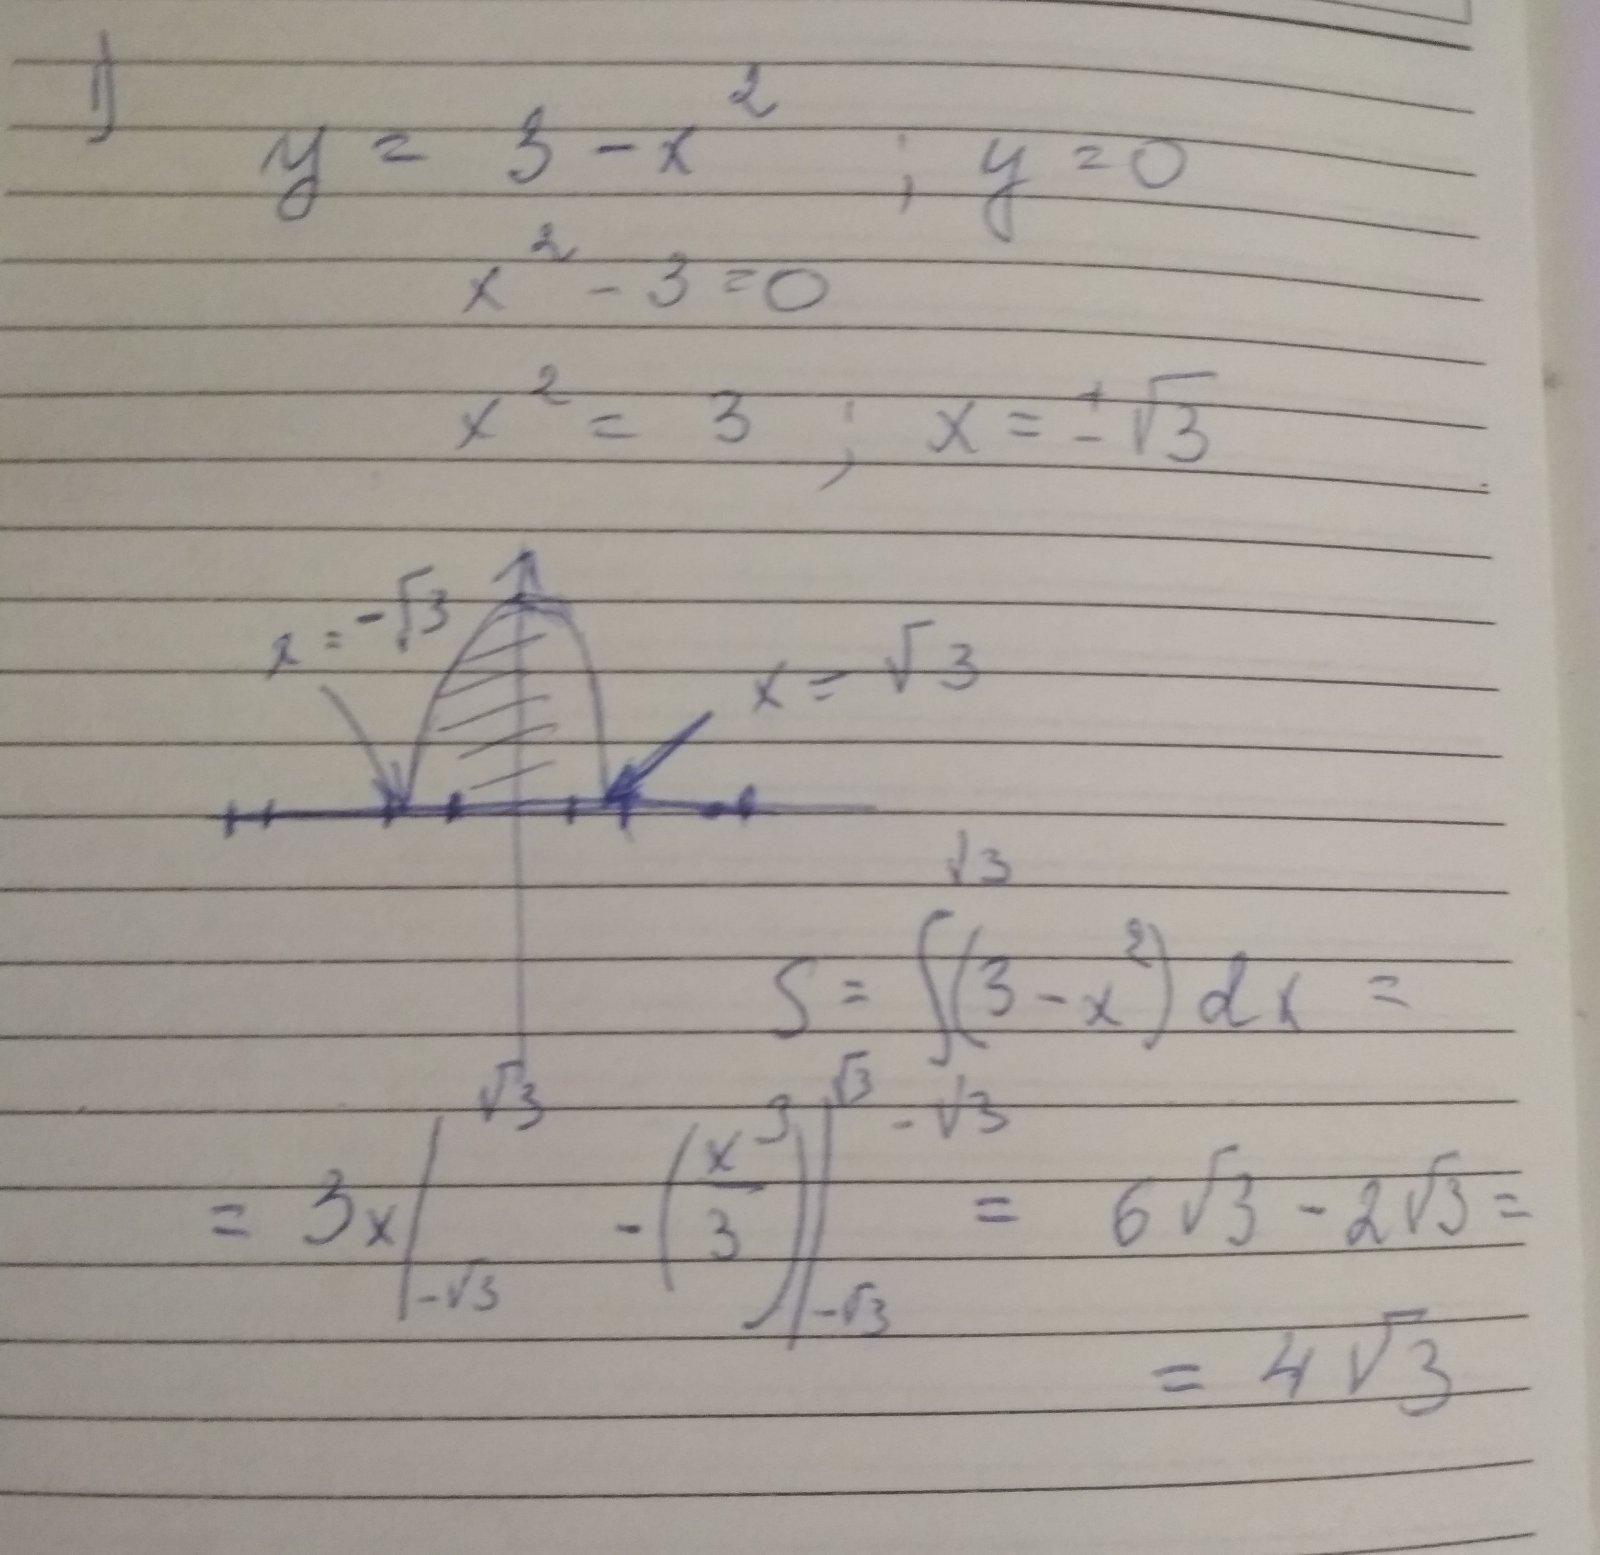 1)
y = 3 - x² ; y = 0
x² - 3 = 0
x² = 3 ; x = ± √3
x = -√3
x = √3
S = ∫_{-√3}^{√3} (3 - x²) dx =
= 3x |_{-√3}^{√3} - (x³/3) |_{-√3}^{√3} = 6√3 - 2√3 =
= 4√3